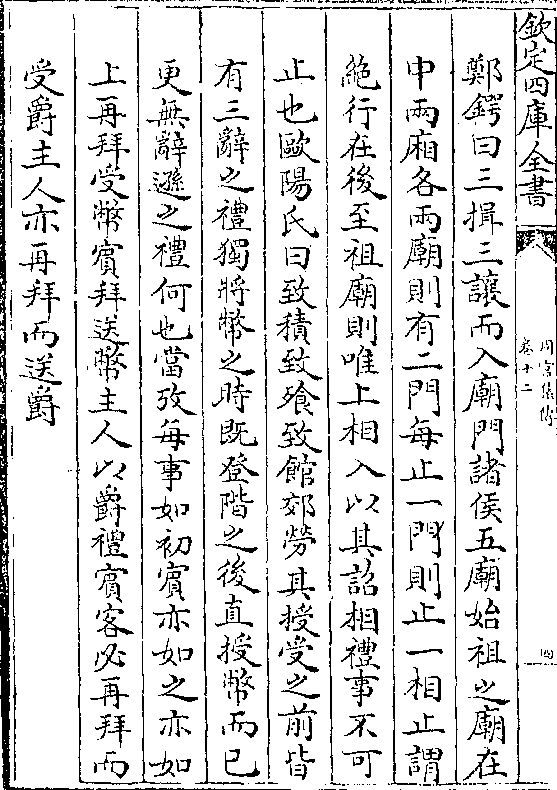 欽定四庫全書
周官集傳
卷十二
四
鄭鍔曰三揖三讓而入廟門諸侯五廟始祖之廟在
中兩廂各兩廟則有二門每止一門則止一相止謂
絶行在後至祖廟則唯上相入以其詔相禮事不可
止也歐陽氏曰致積致飱致館郊勞其授受之前皆
有三辭之禮獨將幣之時既登階之後直授幣而已
更無辭遜之禮何也當攷每事如初賓亦如之亦如
上再拜受幣賓拜送幣主人以爵禮賓客必再拜而
受爵主人亦再拜而送爵